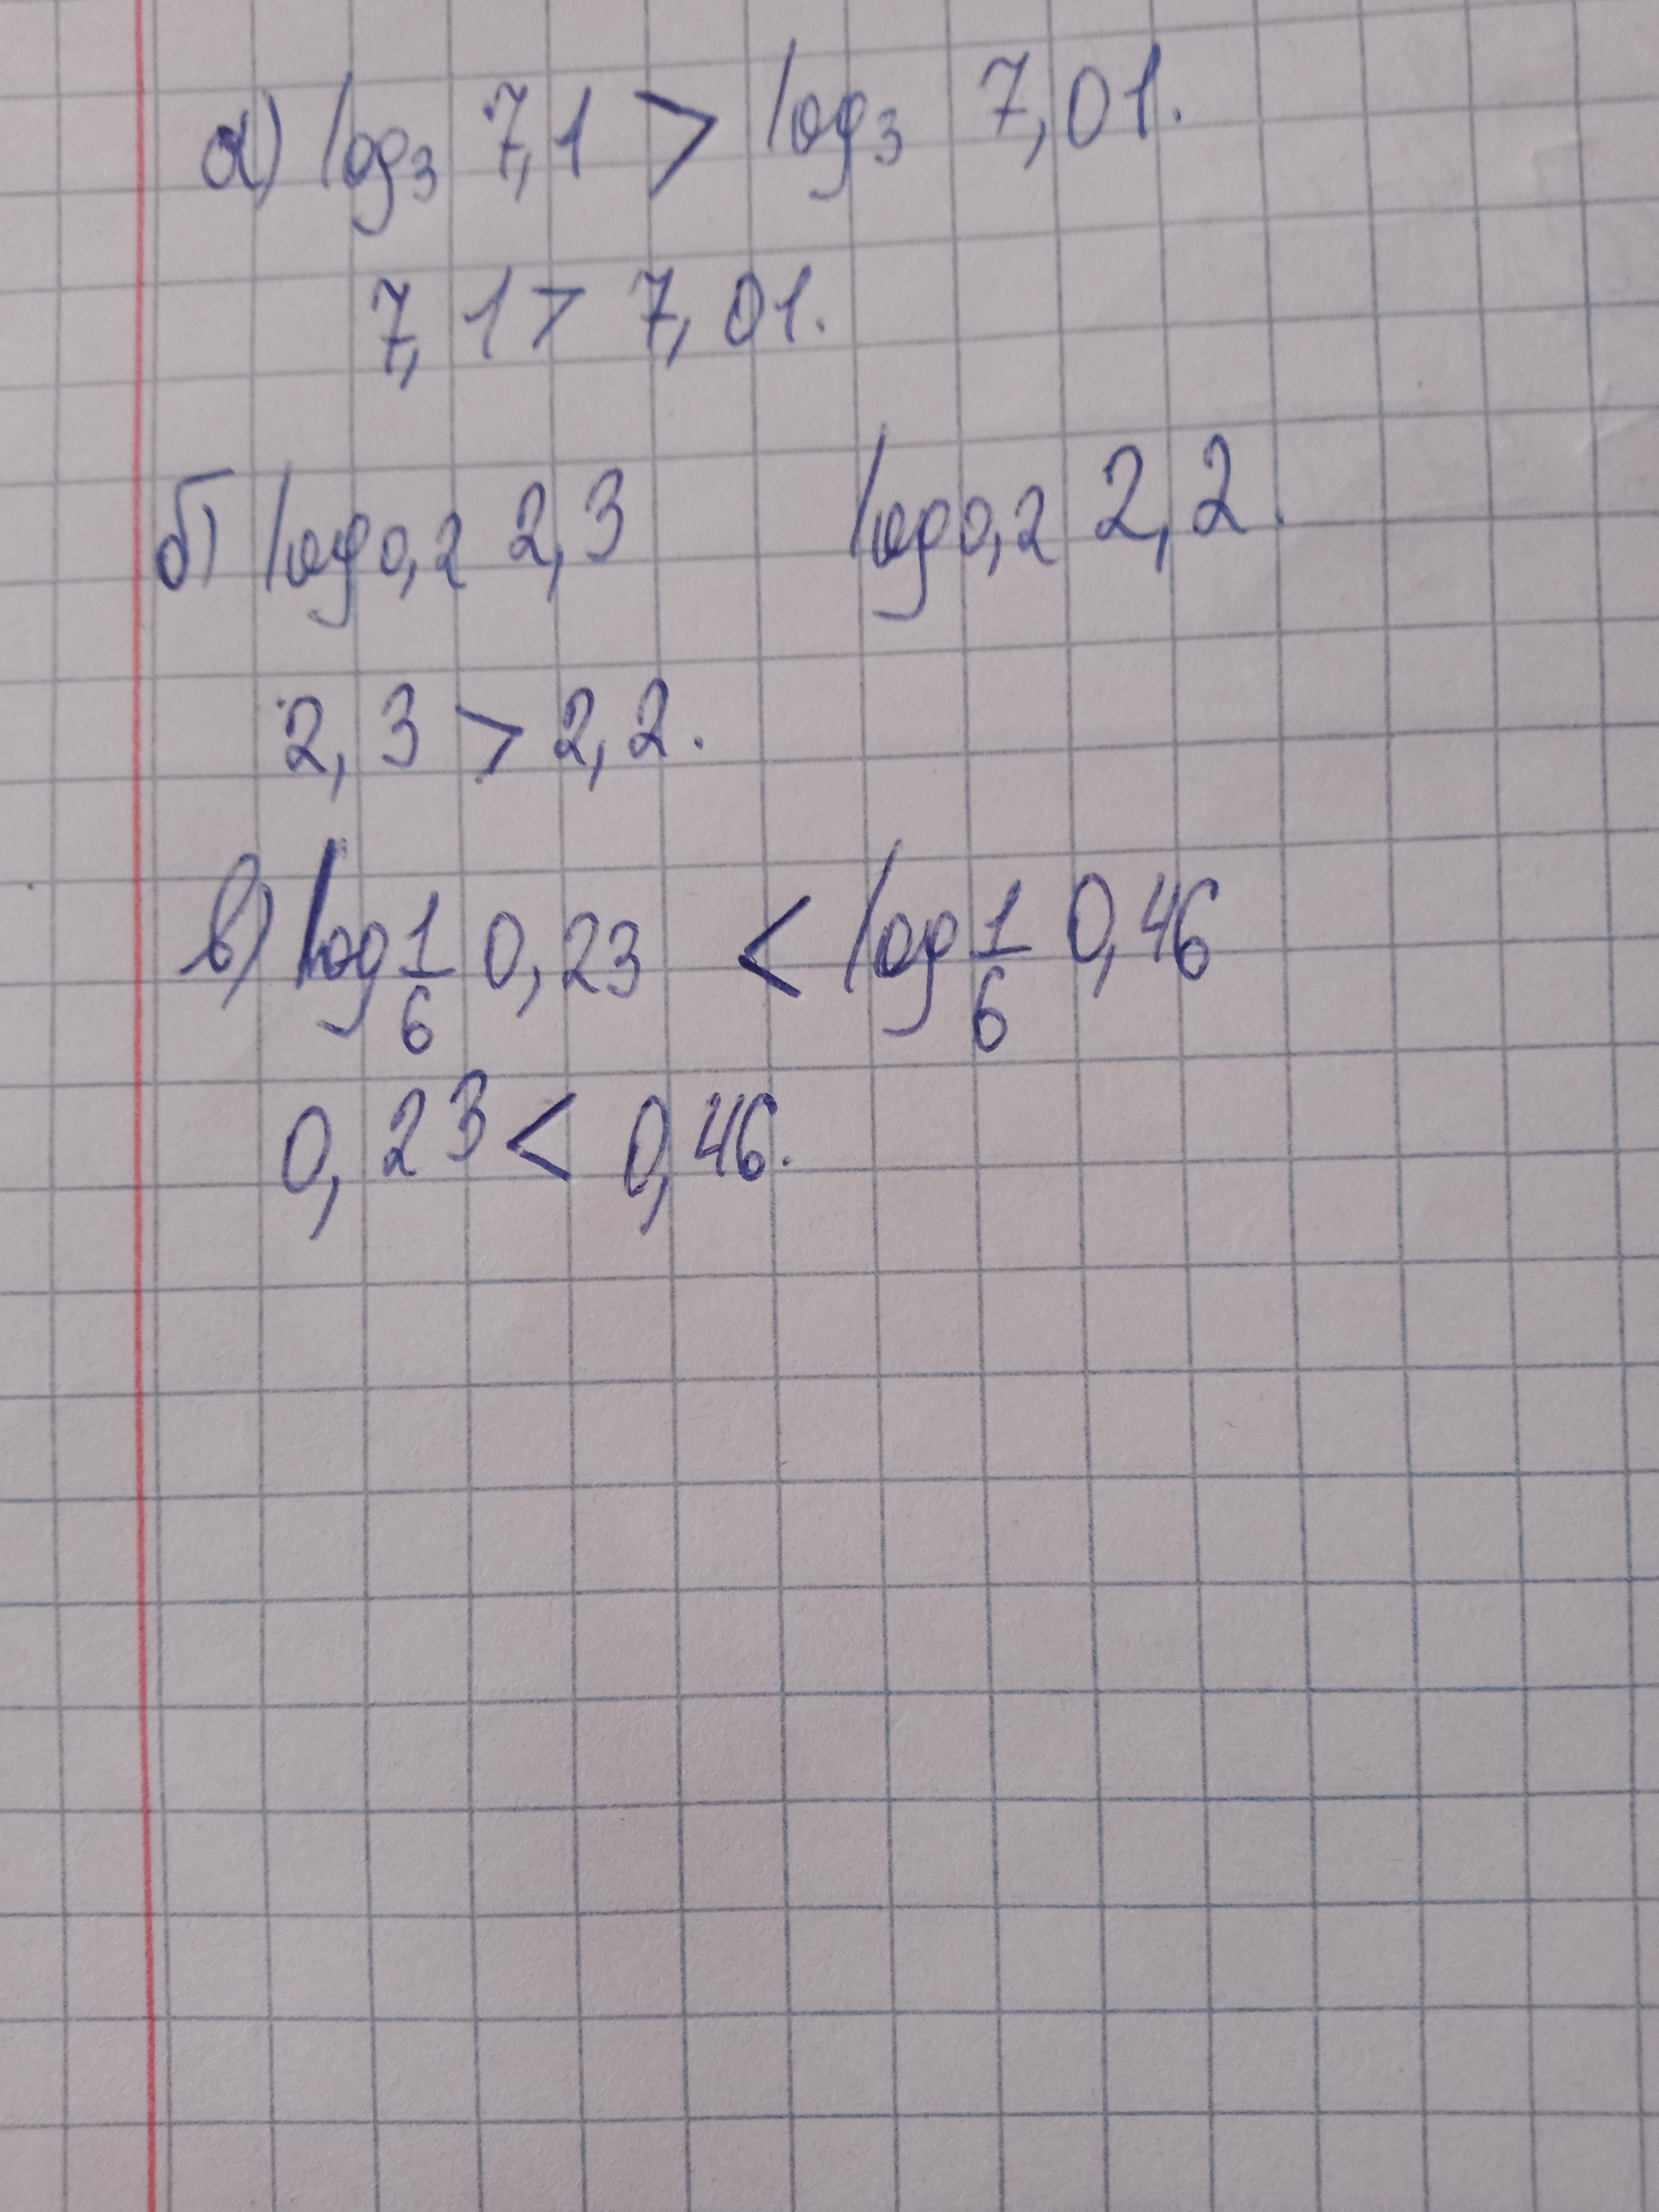 а) log₃ 7,1 > log₃ 7,01.
7,1 > 7,01.
б) log₀,₂ 2,3 log₀,₂ 2,2.
2,3 > 2,2.
в) log 1/6 0,23 < log 1/6 0,46
0,23 < 0,46.